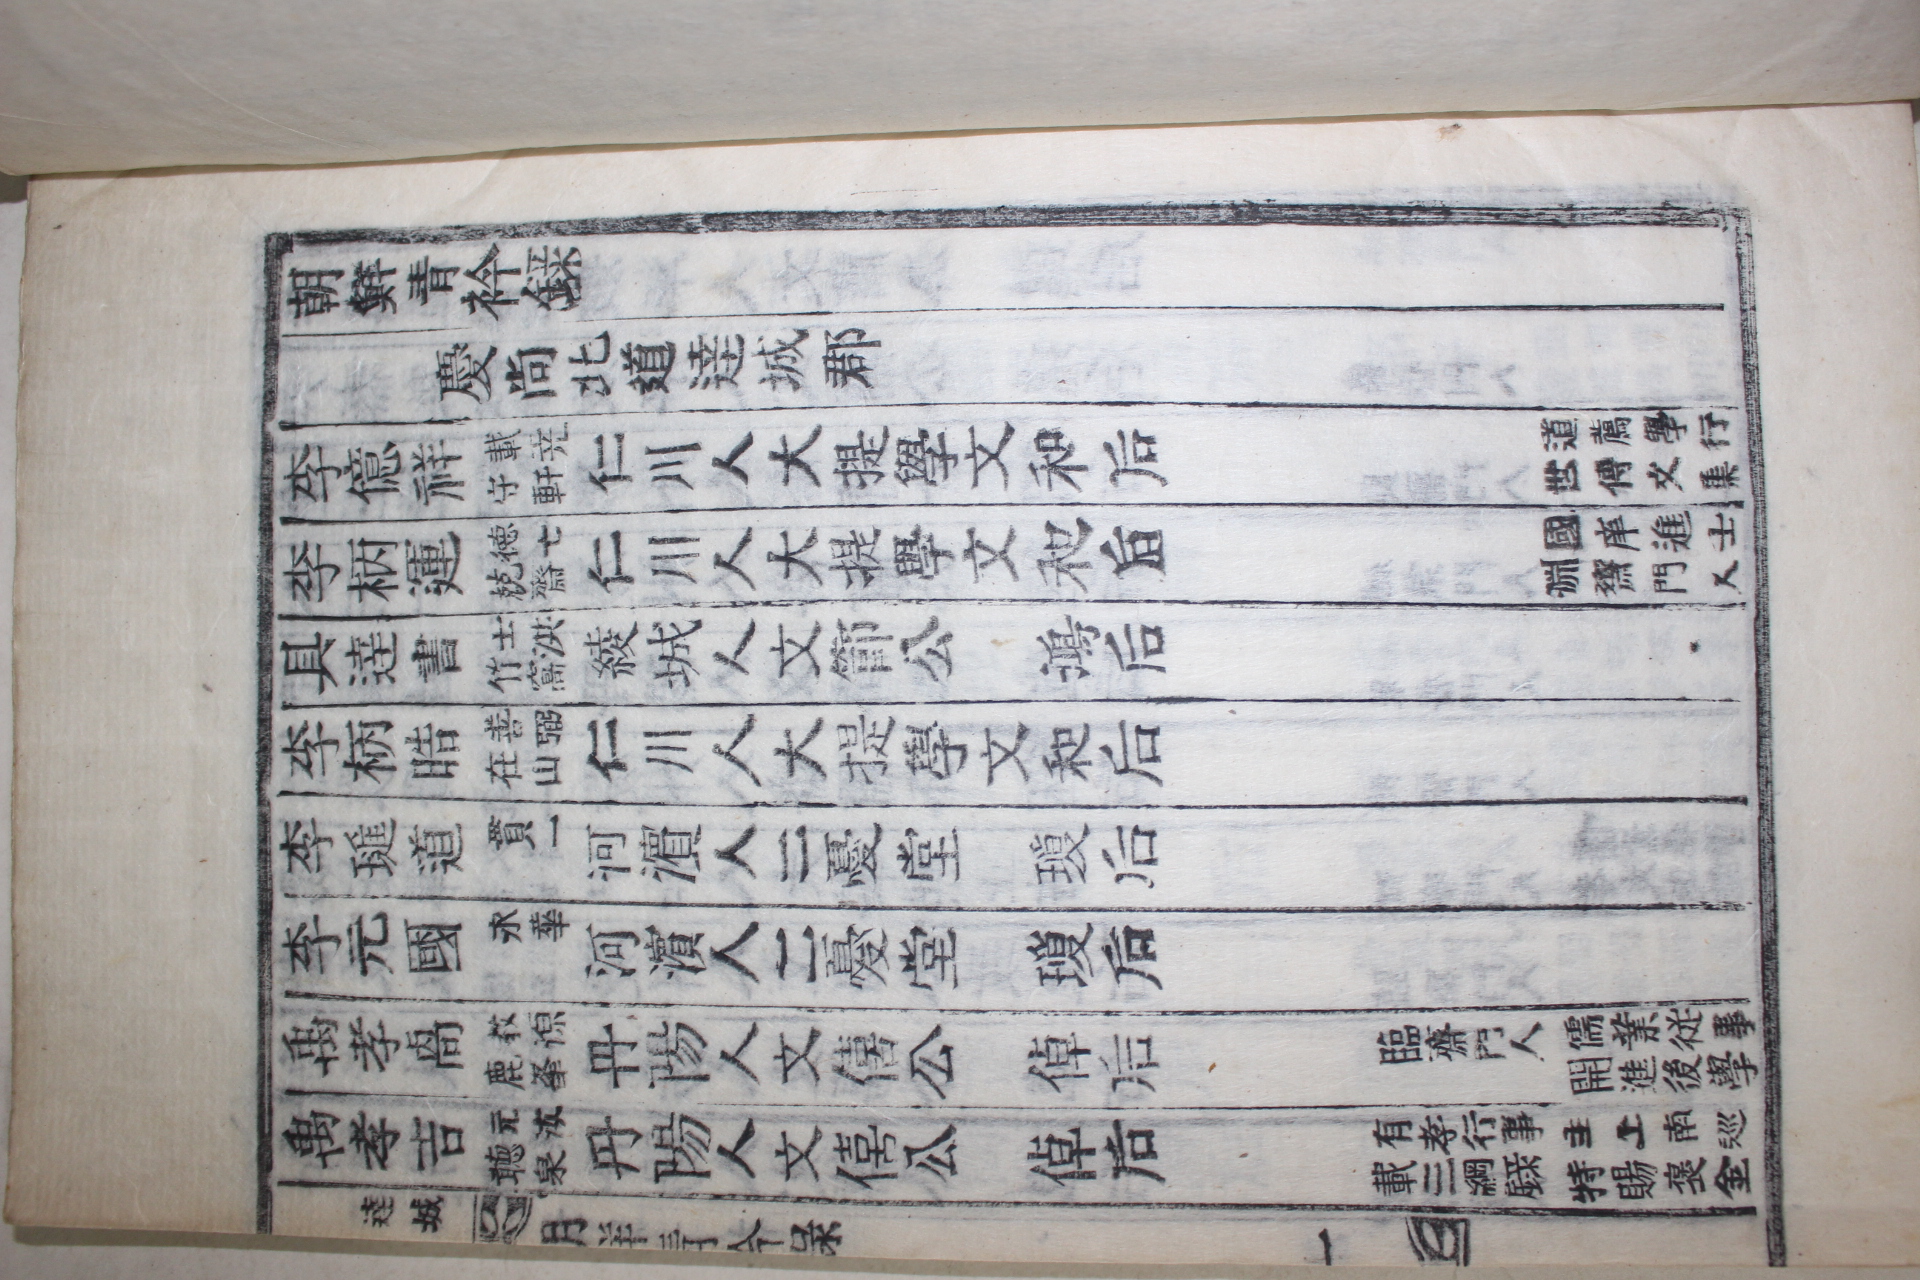 朝鮮青衿錄
慶尚北道逹城郡
李億祥 載堯 守軒 仁川人大提學文和后 道薦學行 世傳文集
李柄運 德七 兢齋 仁川人大提學文和后 國庠進士 淵齋門人
具逹書 士洪 竹窩 綾城人文節公 鴻后
李柄晧 善弼 在山 仁川人大提學文和后
李璡道 貫一 河濱人二憂堂 瓊后
李元國 永華 河濱人二憂堂 瓊后
禹孝卨 敎源 鹿峯 丹陽人文僖公 倬后 臨齋門人 儒業從事 開進後學
禹孝吉 元汝 聽泉 丹陽人文僖公 倬后 有孝行事 載三綱錄 主上南巡 特賜褒金
逹城 朝鮮青衿錄 一